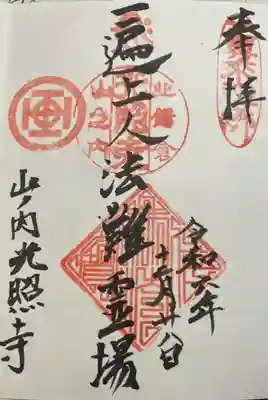 奉拝
一遍上人法難霊場
令和六年
十二月廿八日
山ノ内光照寺
北鎌倉
山之内